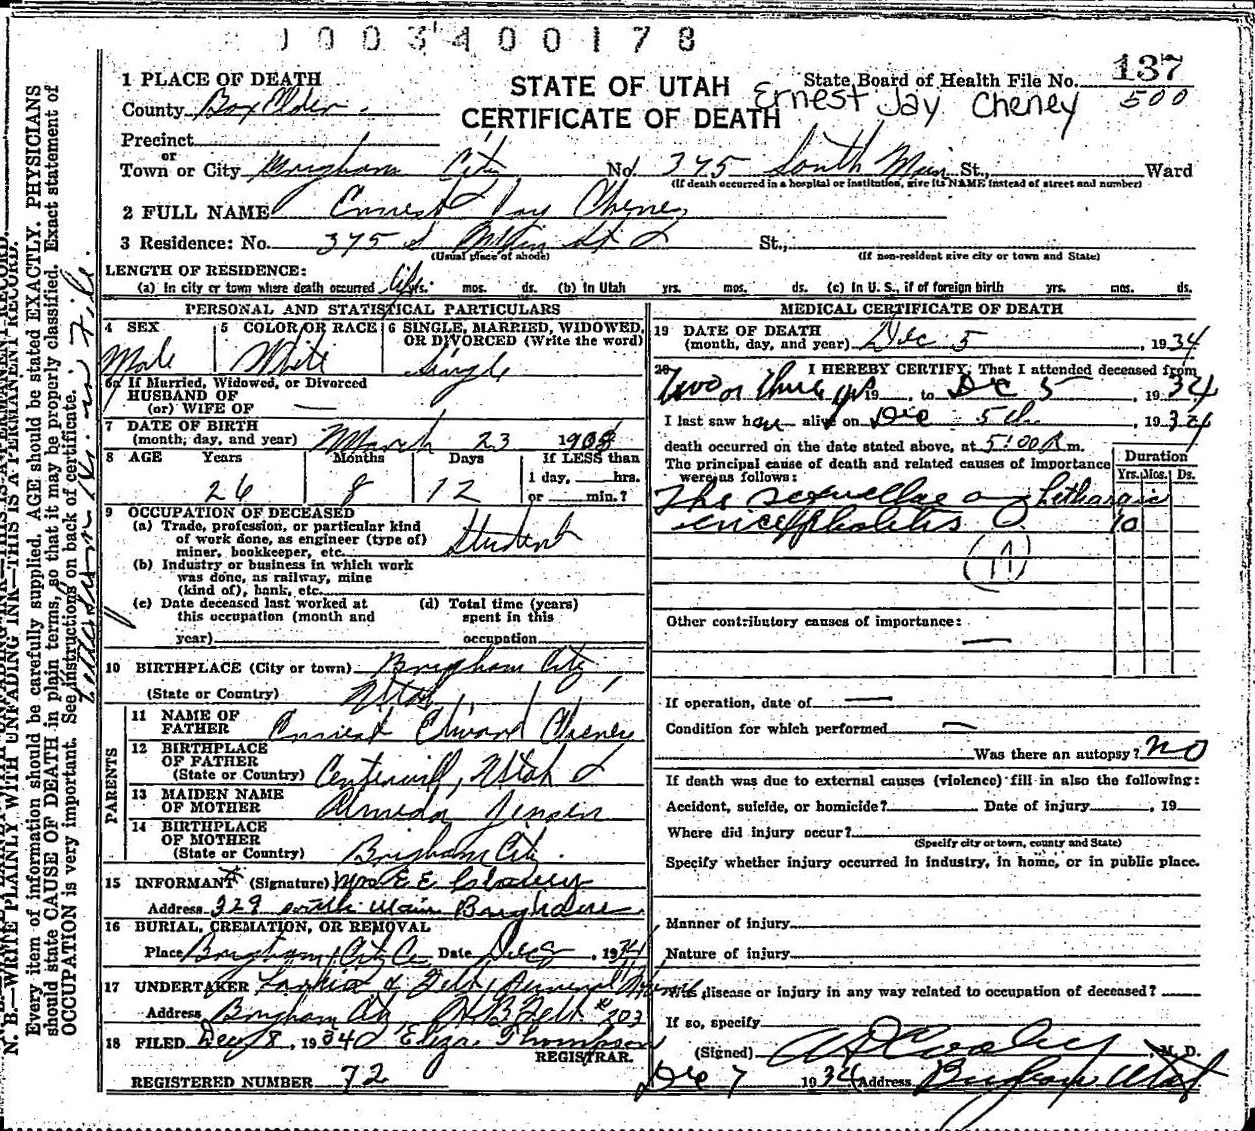 1003400178
1 PLACE OF DEATH
County Box Elder
Precinct
or
Town or City Brigham City No. 375 South Main St., Ward
(If death occurred in a hospital or institution, give its NAME instead of street and number)
STATE OF UTAH
CERTIFICATE OF DEATH
State Board of Health File No. 137
500
Ernest Jay Cheney
2 FULL NAME Ernest Jay Cheney
3 Residence: No. 375 S Main St St.,
(Usual place of abode) (If non-resident give city or town and State)
LENGTH OF RESIDENCE:
(a) In city or town where death occurred life yrs. mos. ds. (b) In Utah yrs. mos. ds. (c) In U. S., if of foreign birth yrs. mos. ds.
PERSONAL AND STATISTICAL PARTICULARS
4 SEX Male
5 COLOR OR RACE White
6 SINGLE, MARRIED, WIDOWED, OR DIVORCED (Write the word) Single
6a If Married, Widowed, or Divorced
HUSBAND OF
(or) WIFE OF —
7 DATE OF BIRTH
(month, day, and year) March 23 1908
8 AGE Years Months Days If LESS than
1 day, hrs.
26 8 12 or min.?
9 OCCUPATION OF DECEASED
(a) Trade, profession, or particular kind
of work done, as engineer (type of)
miner, bookkeeper, etc. Student
(b) Industry or business in which work
was done, as railway, mine
(kind of), bank, etc.
(c) Date deceased last worked at
this occupation (month and
year)
(d) Total time (years)
spent in this
occupation
10 BIRTHPLACE (City or town) Brigham City,
(State or Country) Utah
PARENTS
11 NAME OF
FATHER Ernest Edward Cheney
12 BIRTHPLACE
OF FATHER
(State or Country) Centerville, Utah
13 MAIDEN NAME
OF MOTHER Almeda Jensen
14 BIRTHPLACE
OF MOTHER
(State or Country) Brigham City.
15 INFORMANT (Signature) Mrs E E Cheney
Address 329 South Main Brigham
16 BURIAL, CREMATION, OR REMOVAL
Place Brigham City Date Dec 8, 1934
17 UNDERTAKER Felt Funeral Home
Address Brigham City Felt # 203
18 FILED Dec 8, 1934 Eliza Thompson
REGISTRAR.
REGISTERED NUMBER 72
MEDICAL CERTIFICATE OF DEATH
19 DATE OF DEATH
(month, day, and year) Dec 5, 1934
20 I HEREBY CERTIFY, That I attended deceased from
two or three yrs 19, to Dec 5, 1934
I last saw h alive on Dec 5th, 1934
death occurred on the date stated above, at 5:00 A m.
The principal cause of death and related causes of importance
were as follows:
Duration
Yrs. Mos. Ds.
The sequellae of Lethargic
encephalitis 10
Other contributory causes of importance:
—
If operation, date of —
Condition for which performed —
Was there an autopsy? no
If death was due to external causes (violence) fill in also the following:
Accident, suicide, or homicide? Date of injury, 19
Where did injury occur?
(Specify city or town, county and State)
Specify whether injury occurred in industry, in home, or in public place.
Manner of injury
Nature of injury
Was disease or injury in any way related to occupation of deceased?
If so, specify
(Signed) A D Cooley, M. D.
Dec 7 1934 (Address Brigham Utah
N. B.—WRITE PLAINLY WITH UNFADING INK—THIS IS A PERMANENT RECORD.
Every item of information should be carefully supplied. AGE should be stated EXACTLY. PHYSICIANS
should state CAUSE OF DEATH in plain terms, so that it may be properly classified. Exact statement of
OCCUPATION is very important. See instructions on back of certificate.